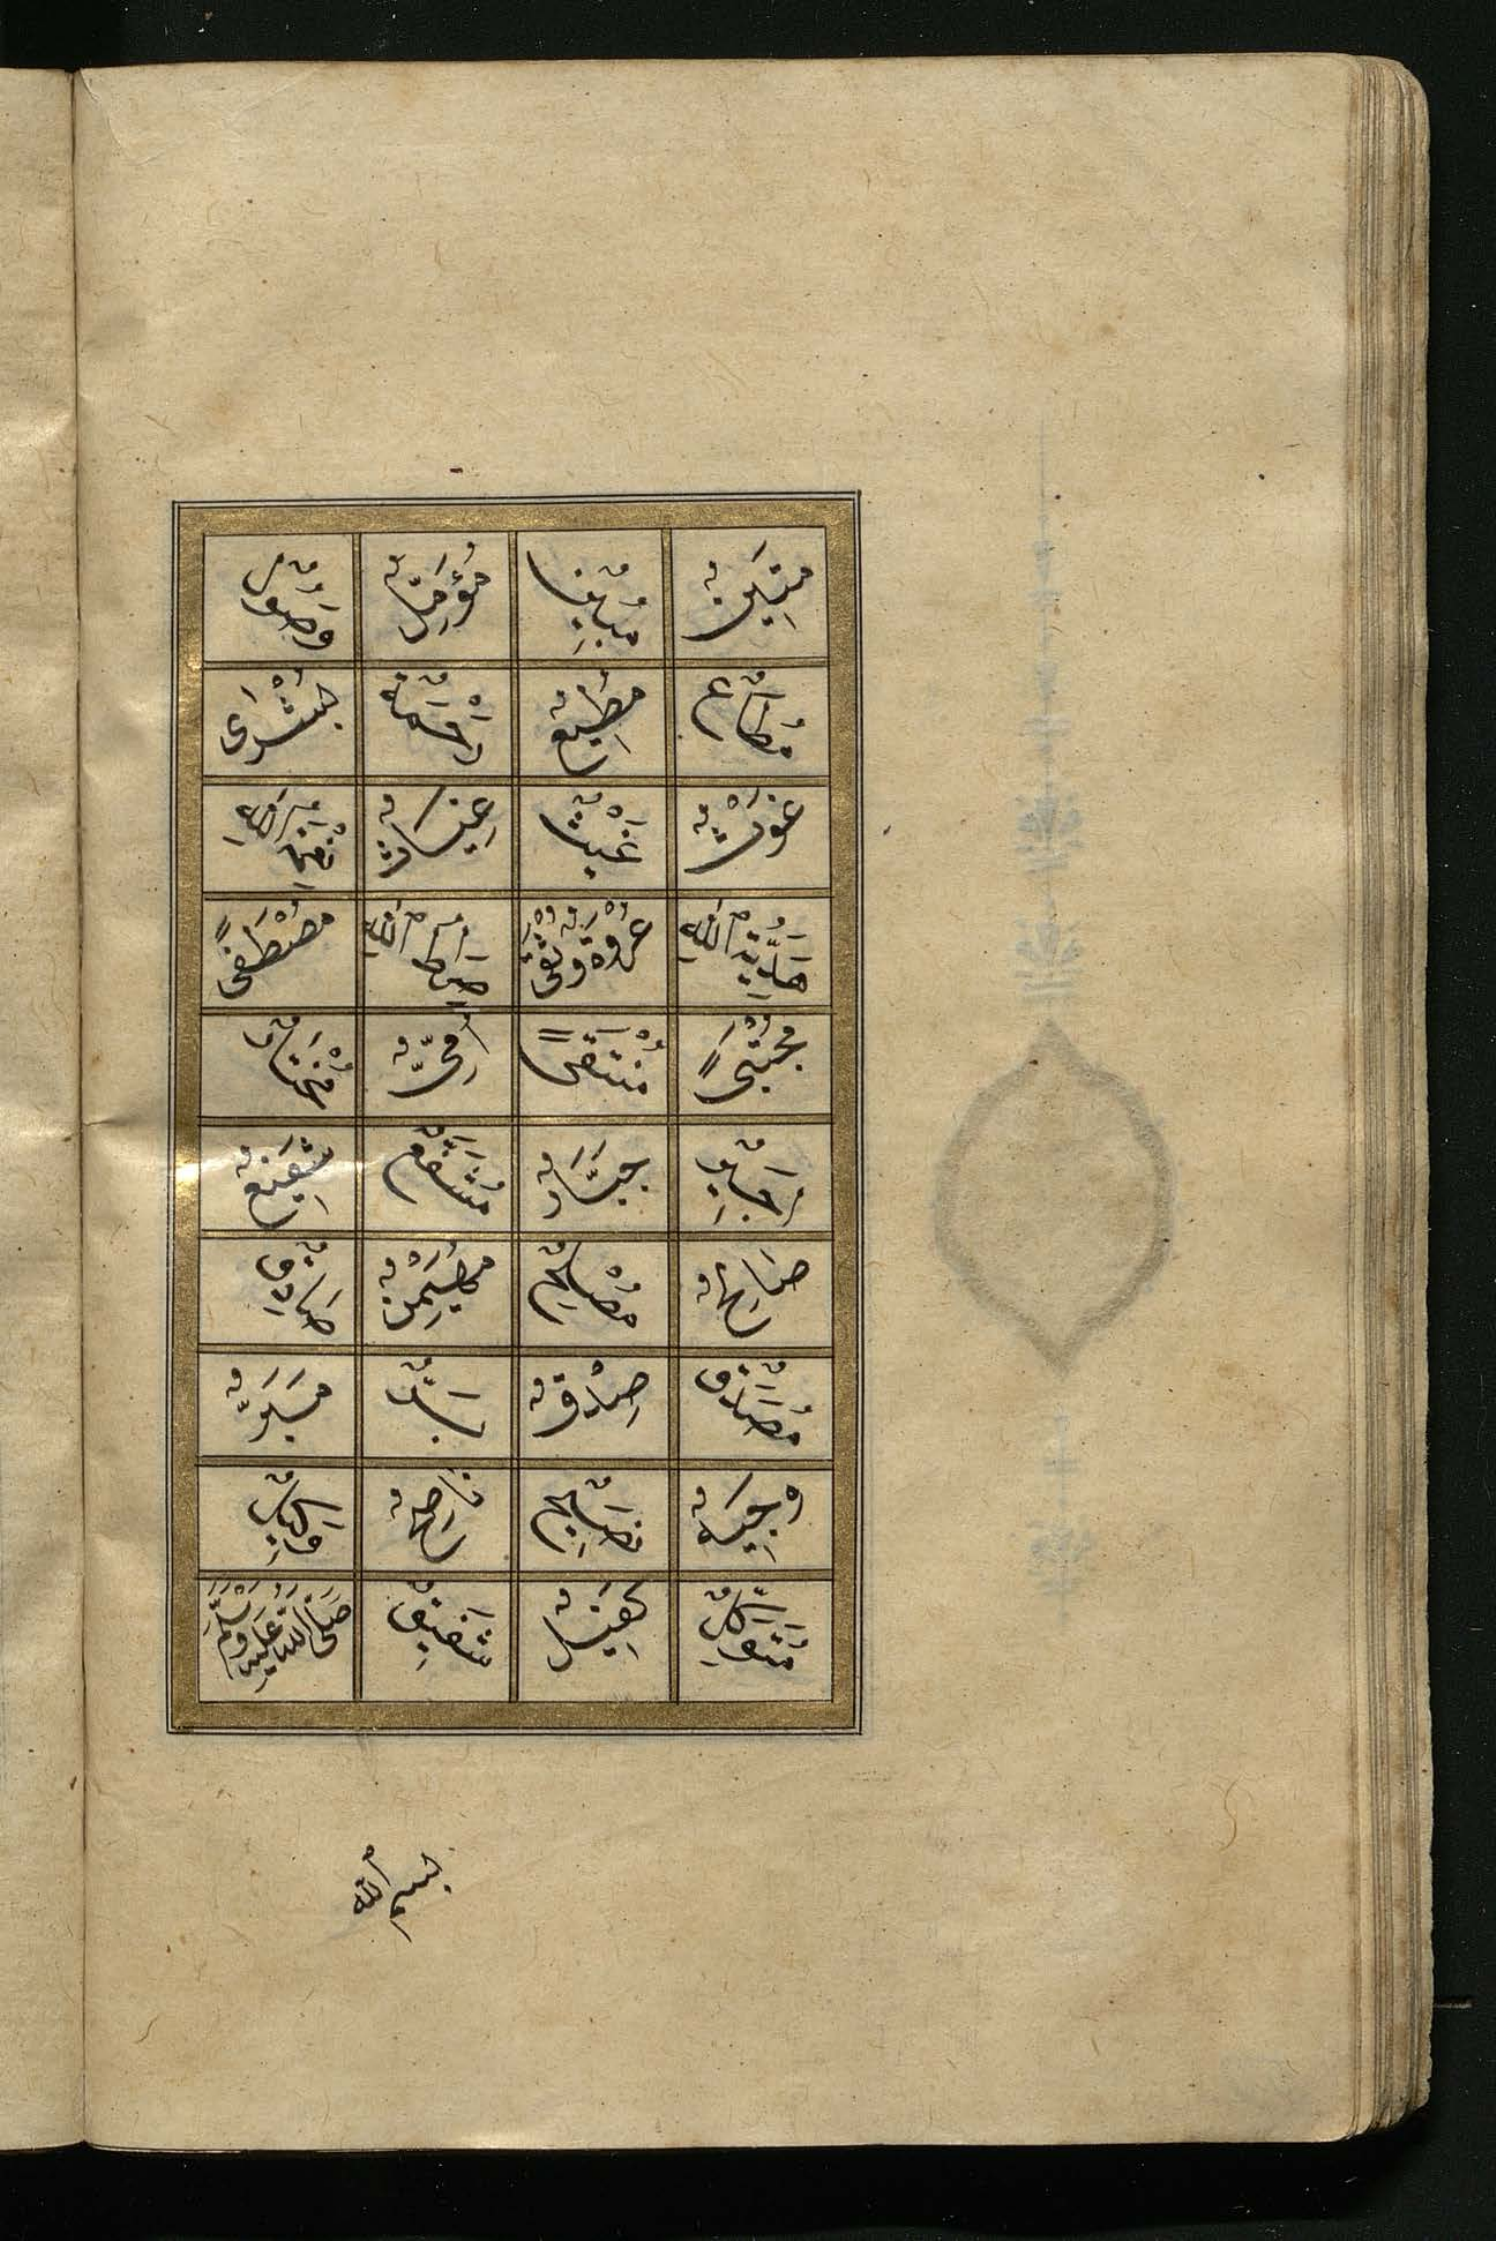 مَتِينٌ مُبِينٌ مُؤَمِّلٌ وَصُولٌ
مُطَاعٌ مُطِيعٌ رَحْمَةٌ بُشْرَى
غَوْثٌ غَيْثٌ غِيَاثٌ نِعْمَةُ اللهِ
هَدِيَّةُ اللهِ عُرْوَةٌ وُثْقَى صِرَاطُ اللهِ مُصْطَفًى
مُجْتَبًى مُنْتَقًى أُمِّيٌّ مُخْتَارٌ
أَجِيرٌ جَبَّارٌ مُشَفَّعٌ شَفِيعٌ
صَالِحٌ مُصْلِحٌ مُهَيْمِنٌ صَادِقٌ
مُصَدَّقٌ صِدْقٌ بَرٌّ مَبَرٌّ
وَجِيهٌ نَصِيحٌ نَاصِحٌ وَكِيلٌ
مُتَوَكِّلٌ كَفِيلٌ شَفِيقٌ صَلَّى اللهُ عَلَيْهِ وَسَلَّمَ
بسم الله